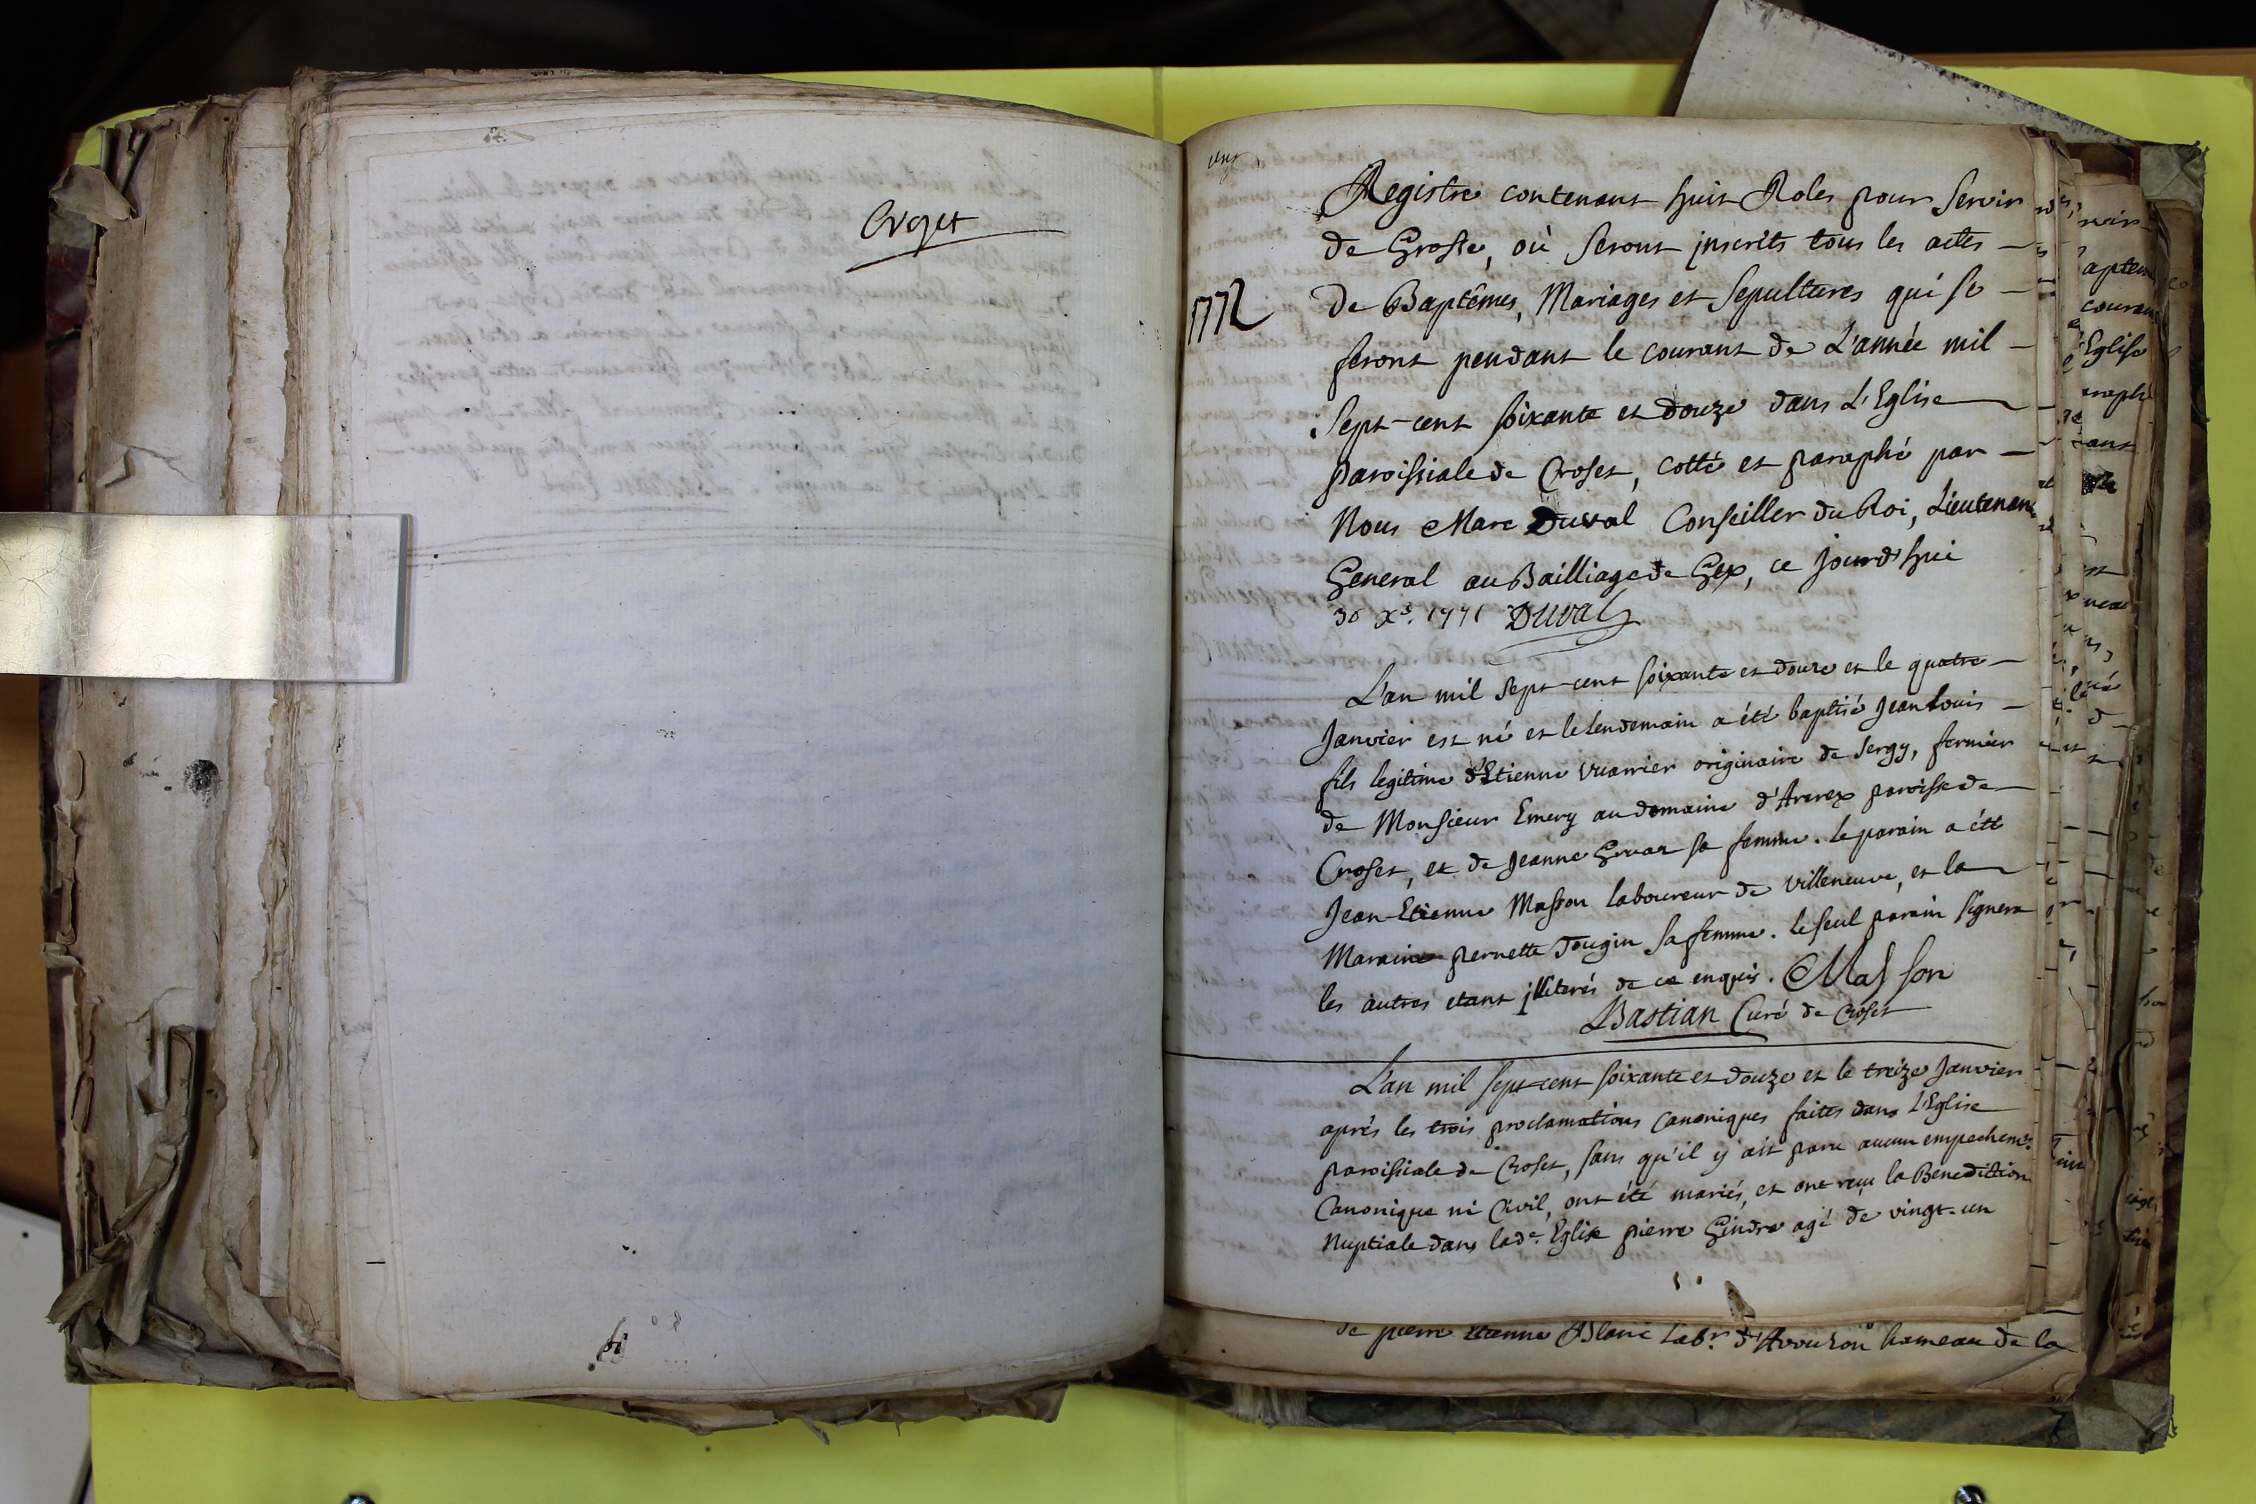 Crozet
1772
Registre contenant huit Roles pour servir
de Grosse, où seront jnscrits tous les actes
de Baptêmes, Mariages et sepultures qui se
feront pendant le courant de L'année mil
sept-cent soixante et douze dans L'Eglise
paroissiale de Croset, cotté et paraphé par
Nous Marc Duval Conseiller du Roi, Lieutenant
General au Bailliage de Gex, ce jourd'hui
30 Xb. 1771 Duval
L'an mil sept-cent soixante et douze et le quatre
Janvier est né et le lendemain a été baptisé Jean Louis
fils legitime d'Etienne Vuarrier originaire de Sergy, fermier
de Monsieur Emery au domaine d' paroisse de
Croset, et de Jeanne sa femme. le parain a été
Jean-Etienne Masson laboureur de villeneuve, et la
Maraine pernette Dougin sa femme. le seul parain signera
les autres etant jlliterés de ce enquis. Masson
LBastian Curé de Croset
L'an mil sept-cent soixante et douze et le treize Janvier
aprés les trois proclamations Canoniques faites dans L'Eglise
paroissiale de Croset, sans qu'il y ait paru aucun empechemt.
Canonique ni Civil, ont été mariés, et ont reçu la Benediction
Nuptiale dans lade. Eglise pierre Gindre agé de vingt-un
de pierre Etienne Blanc Labr. d'Avouson hameau de la